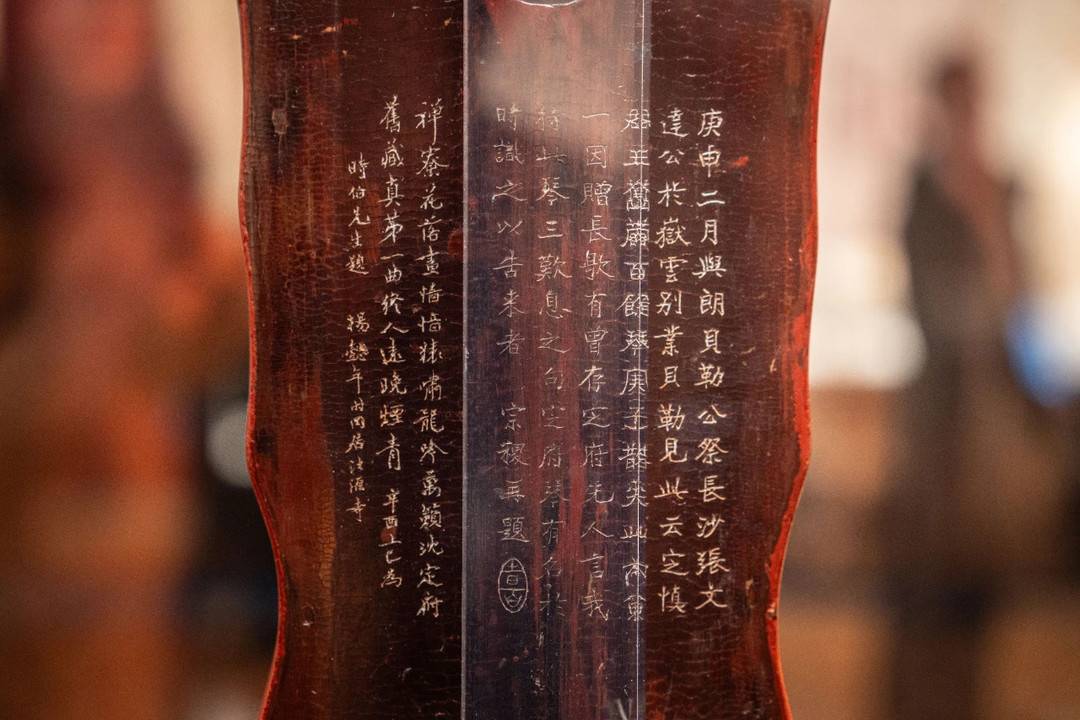 庚申二月與朗貝勒公祭長沙張文
達公於嶽雲别業貝勒見此云定慎
郡王舊藏百餘琴庚子散失此
一因贈長歌有曾存定府无人言我
持此琴三歎息之句定府琴有名於
時識之以告来者 宗稷再題
禅寮花落晝愔愔猿嘯龍吟萬籟沈定府
舊藏真第一曲終人遠晚煙青 辛酉上巳為
時伯先生題 楊懿年時同居法源寺